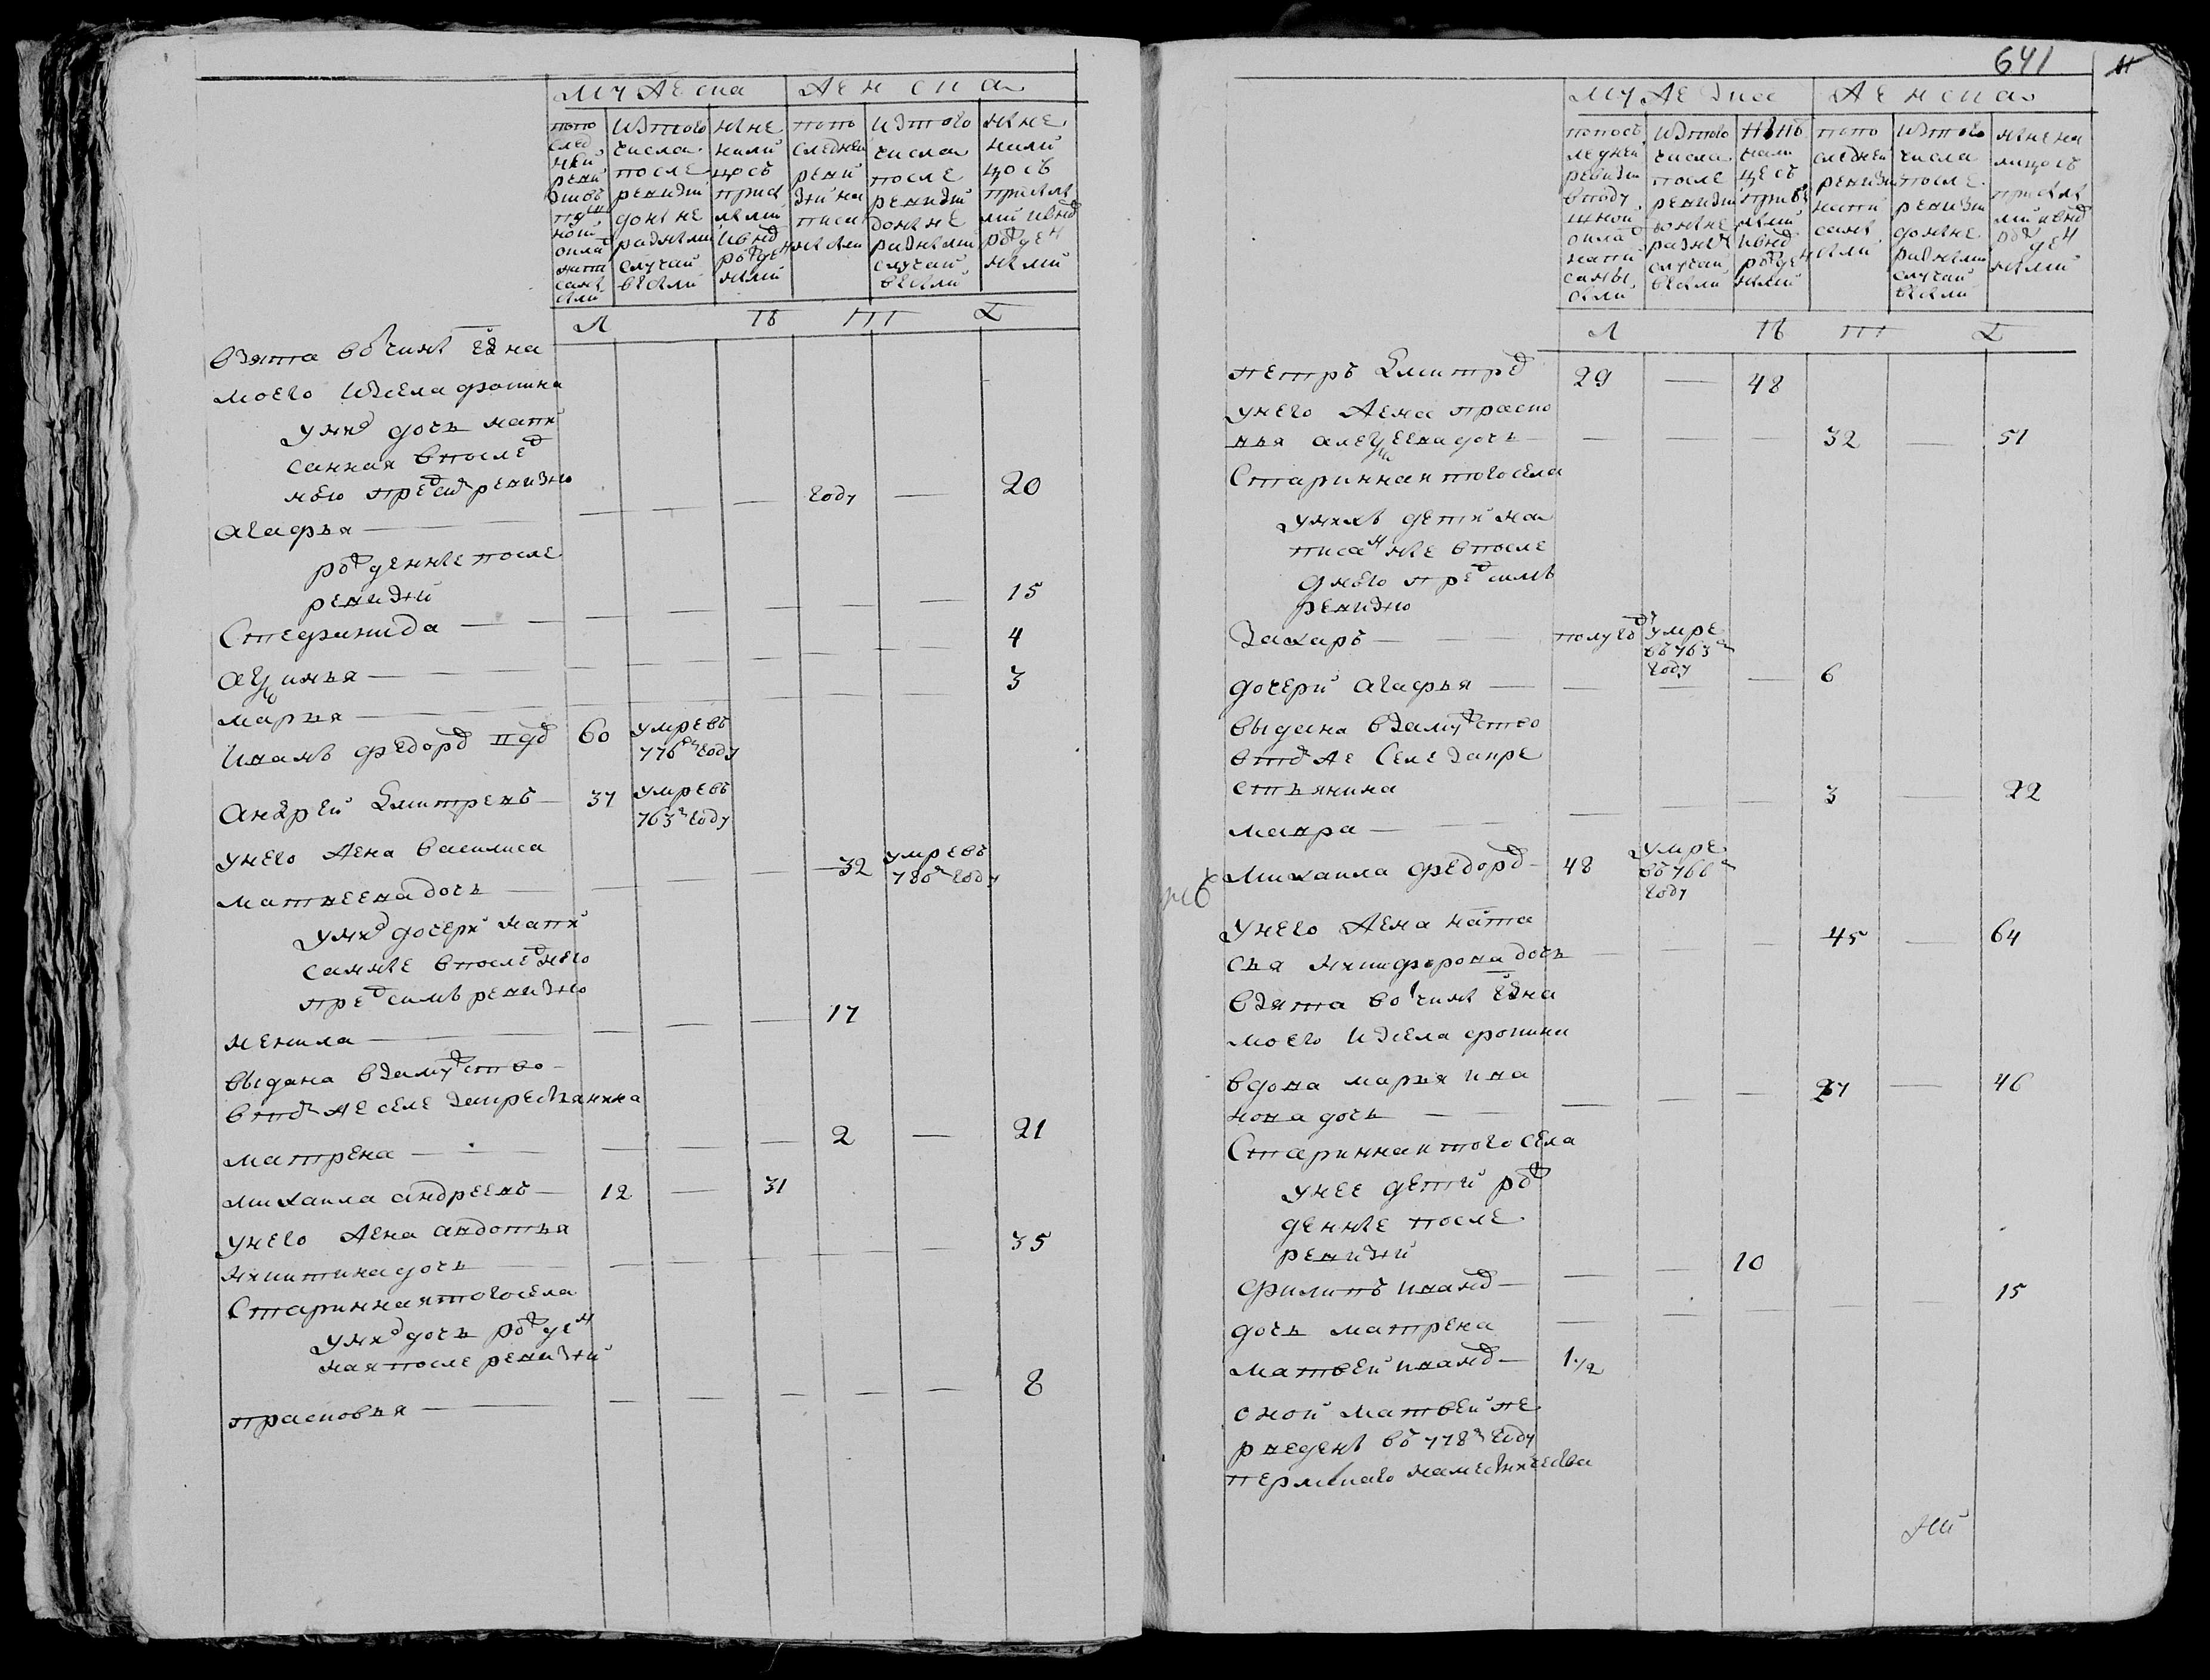 мужеска женска
попо след ней реви зтовъ подуш ной оклад напи саны были
изтого числа после ревизии доныне разными случаи выбыли
ныне нали цосъ прибылыми ивнов рожден ными
попо следней реви зии на писа ны были
изтого числа после ревизии доныне разными случаи выбыли
ныне нали цосъ прибылы ми ивнов рожден ными
взята вотчины ево на
моего изсела фонина
у них дочь напи
санная впослед
нюю пред сим ревизию
агафья году 20
рожденные после
ревизии
Степанида 15
аксинья 4
марья 3
Иванъ федоров 60 умре въ 776м году
андрей Дмитревъ 37 умре въ 763м году
у него жена василиса
матвеева дочь 32 умре въ 780м году
у них дочери напи
санные впоследнюю
пред симъ ревизию
ненила 17
выдана взамужство
втож же селе закрестьянина
матрена 2 21
михаила андреевъ 12 31
у него жена авдотья
никитина дочь 35
Старинная того села
у них дочь рожден
ная после ревизии
прасковья 8
641
мужеска женска
попосъ ледней ревизии вподу шной оклад напи саны были
изтого числа после ревизии доныне разны случаи выбыли
нынъ нали цесъ прибы лыми ивнов рожден ными
попо следней ревизии напи саны были
изтого числа после ревизии доныне разными случаи выбыли
ныне на лицосъ прибылы ми ивнов рожден ными
петръ Дмитров 29 48
у него жена праско
вья алексеева дочь 32 51
Старинная того села
у них детй на
писан ные впосле
днюю пред симъ
ревизию
Захаръ полугод умре въ 763м году
дочери агафья 6
выдана взамужство
втож же Селе закре
стьянина
мавра 3 22
михаила федоров 48 умре въ 766м году
у него жена ната
лья никифорова дочь 45 64
взята вотчины ево на
моего изсела фонина
вдова марья ива
нова дочь 27 46
Старинная того села
у нее детй рож
денные после
ревизии
филипъ иванов 10
дочь матрена 15
матвей иванов 1 1/2
оной матвей пе
реведенъ въ 778м году
пермскаго наместничества